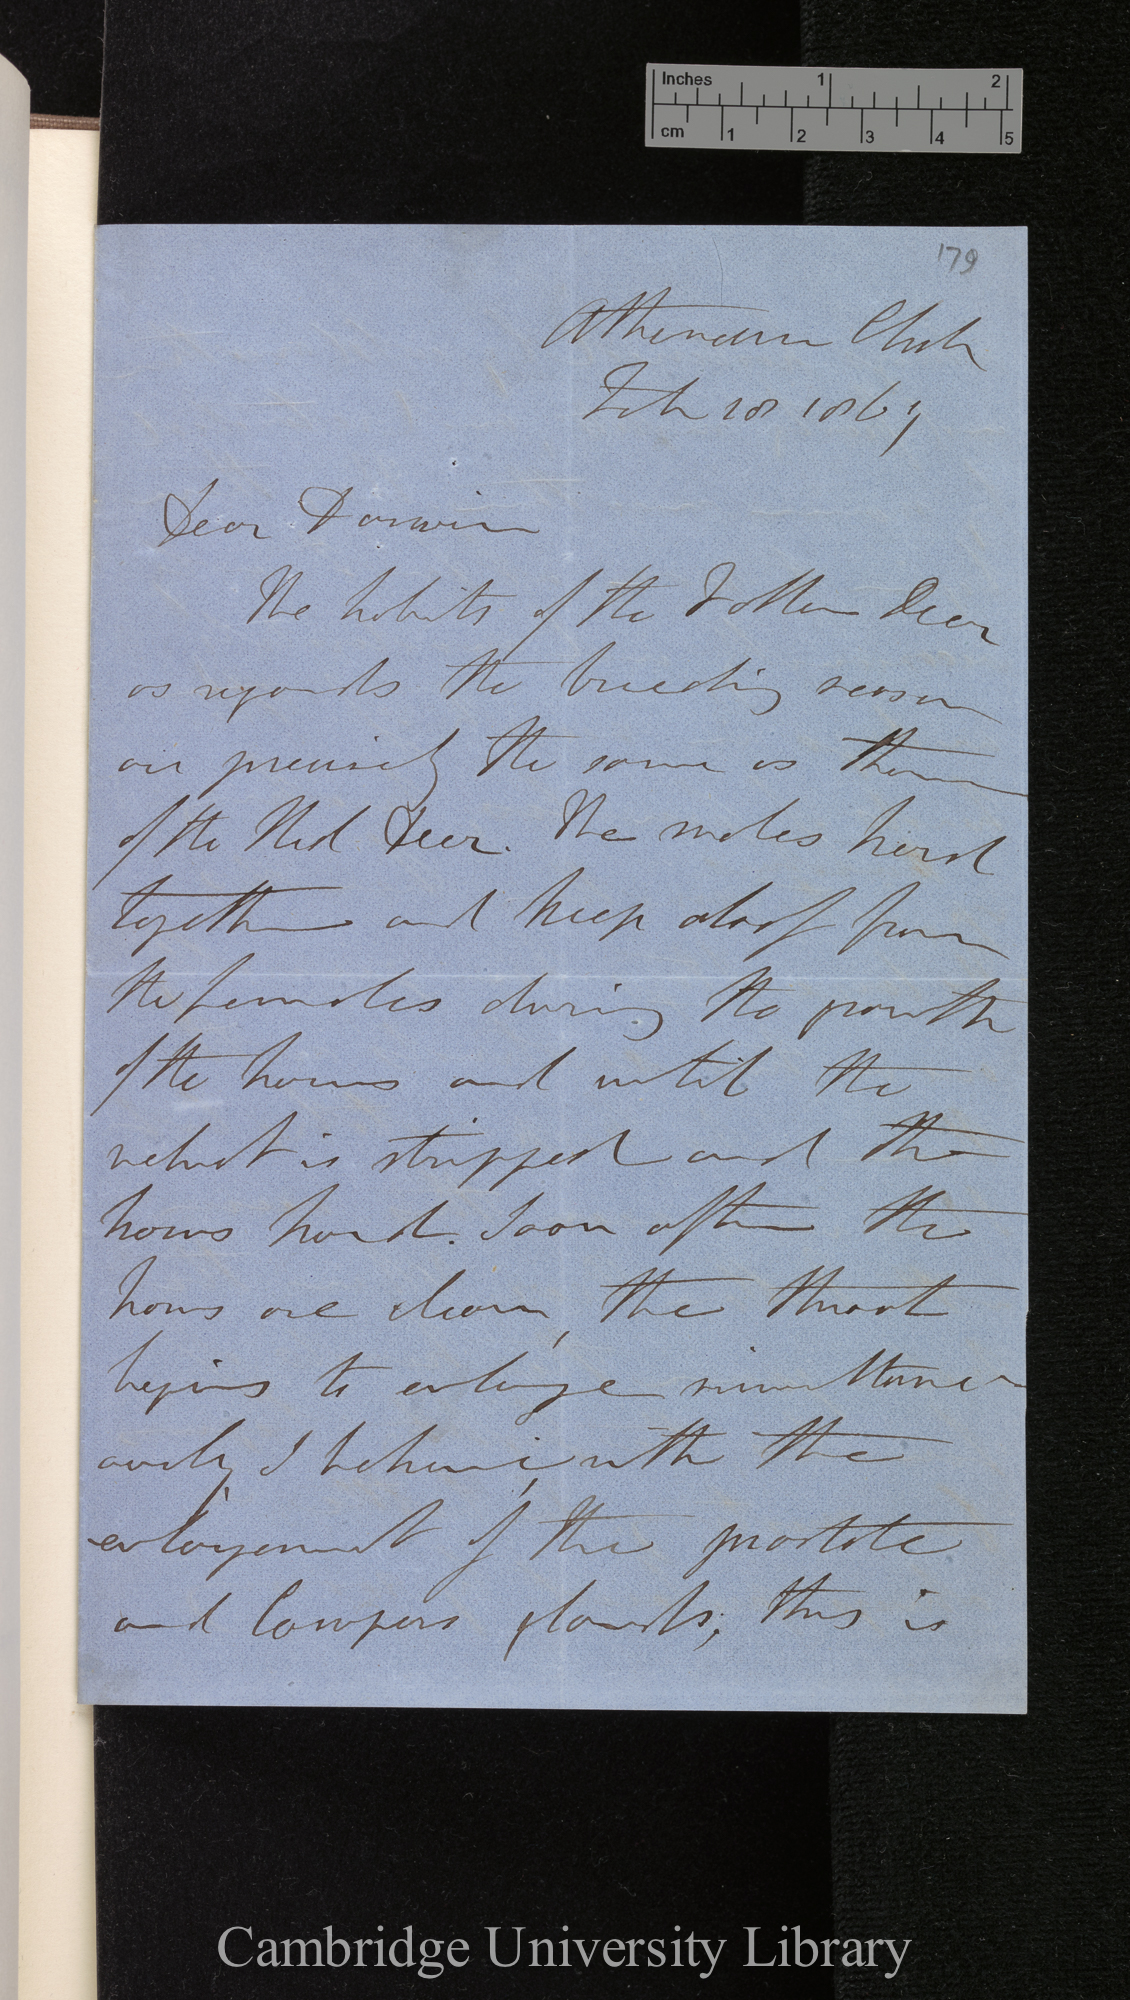 Inches 1 2
cm 1 2 3 4 5
179
Athenaeum Club
Feb 28 1867
Dear Darwin
The habits of the Fallow Deer
as regards the breeding season
are precisely the same as those
of the Red Deer. The males herd
together and keep aloof from
the females during the growth
of the horns and until the
velvet is stripped and the
horns hard. Soon after the
horns are clean, the throat
begins to enlarge simultane-
ously, I believe, with the
enlargement of the prostate
and Cowpers glands; this is
Cambridge University Library